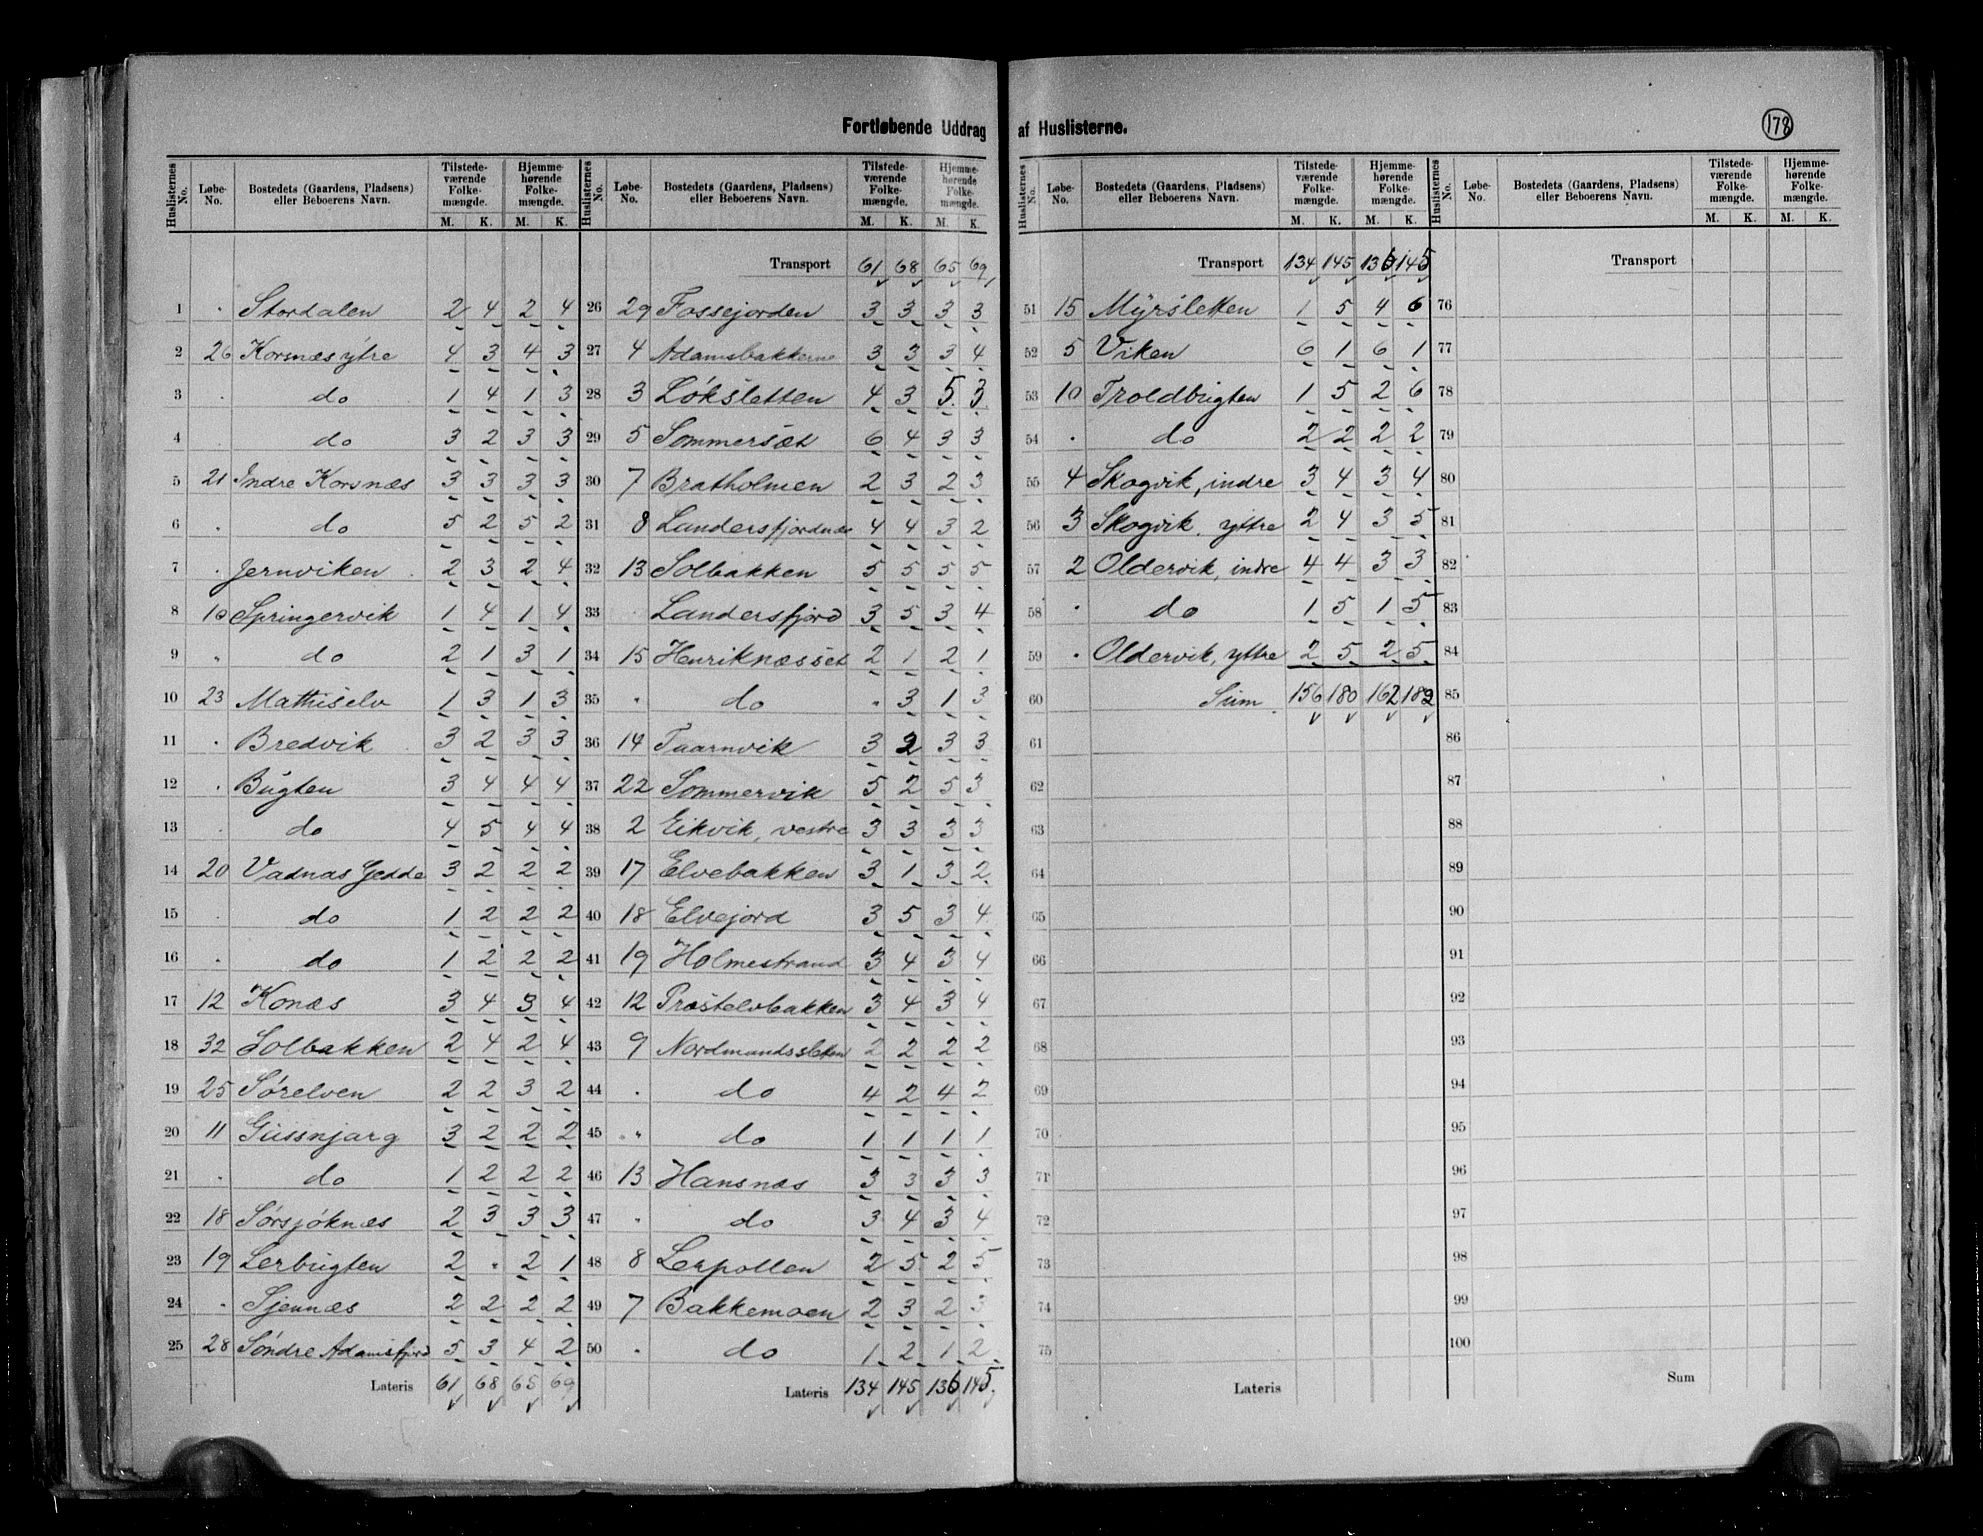 Fortløbende Uddrag af Huslisterne.
178
Huslisternes No. | Løbe-No. | Bostedets (Gaardens, Pladsens) eller Beboerens Navn. | Tilstedeværende Folkemængde. M. K. | Hjemmehørende Folkemængde. M. K.
1 . Stordalen 2 4 2 4
2 26 Korsnæs ytre 4 3 4 3
3 . do 1 4 1 3
4 . do 3 2 3 3
5 21 Indre Korsnæs 3 3 3 3
6 . do 5 2 5 2
7 . Jernviken 2 3 2 4
8 10 Springervik 1 4 1 4
9 " do 2 1 3 1
10 23 Mathiselv 1 3 1 3
11 . Bredvik 3 2 3 3
12 . Bugten 3 4 4 4
13 . do 4 5 4 4
14 20 Vadnas Gedde 3 2 2 2
15 . do 1 2 2 2
16 . do 1 2 2 2
17 12 Konæs 3 4 3 4
18 32 Solbakken 2 4 2 4
19 25 Sørelven 2 2 3 2
20 11 Gussnjarg 3 2 2 2
21 . do 1 2 2 2
22 18 Sørsjøknæs 2 3 3 3
23 19 Lerbugten 2 . 2 1
24 . Sjennæs 2 2 2 2
25 28 Søndre Adamsfjord 5 3 4 2
Lateris 61 68 65 69
Huslisternes No. | Løbe-No. | Bostedets (Gaardens, Pladsens) eller Beboerens Navn. | Tilstedeværende Folkemængde. M. K. | Hjemmehørende Folkemængde. M. K.
Transport 61 68 65 69
26 29 Fossejorden 3 3 3 3
27 4 Adamsbakkerne 3 3 3 4
28 3 Løksletten 4 3 5 3
29 5 Sommersæt 6 4 3 3
30 7 Bratholmen 2 3 2 3
31 8 Landersfjordnæs 4 4 3 2
32 13 Solbakken 5 5 5 5
33 Landersfjord 3 5 3 4
34 15 Henriknæsset 2 1 2 1
35 " do " 3 1 3
36 14 Taarnvik 3 2 3 3
37 22 Sommervik 5 2 5 3
38 2 Eikvik, vestre 3 3 3 3
39 17 Elvebakken 3 1 3 2
40 18 Elvejord 3 5 3 4
41 19 Holmestrand 3 4 3 4
42 12 Præstelvbakken 3 4 3 4
43 9 Nordmandssletten 2 2 2 2
44 . do 4 2 4 2
45 " do 1 1 1 1
46 13 Hansnæs 3 3 3 3
47 " do 3 4 3 4
48 8 Lerpollen 2 5 2 5
49 7 Bakkemoen 2 3 2 3
50 . do 1 2 1 2
Lateris 134 145 136 145
Huslisternes No. | Løbe-No. | Bostedets (Gaardens, Pladsens) eller Beboerens Navn. | Tilstedeværende Folkemængde. M. K. | Hjemmehørende Folkemængde. M. K.
Transport 134 145 136 145
51 15 Myrsletten 1 5 4 6
52 5 Viken 6 1 6 1
53 10 Troldbugten 1 5 2 6
54 . do 2 2 2 2
55 4 Skogvik, indre 3 4 3 4
56 3 Skogvik, yttre 2 4 3 5
57 2 Oldervik, indre 4 4 3 3
58 . do 1 5 1 5
59 . Oldervik, yttre 2 5 2 5
60 Sum 156 180 162 182
61
62
63
64
65
66
67
68
69
70
71
72
73
74
75
Lateris
Huslisternes No. | Løbe-No. | Bostedets (Gaardens, Pladsens) eller Beboerens Navn. | Tilstedeværende Folkemængde. M. K. | Hjemmehørende Folkemængde. M. K.
Transport
76
77
78
79
80
81
82
83
84
85
86
87
88
89
90
91
92
93
94
95
96
97
98
99
100
Sum